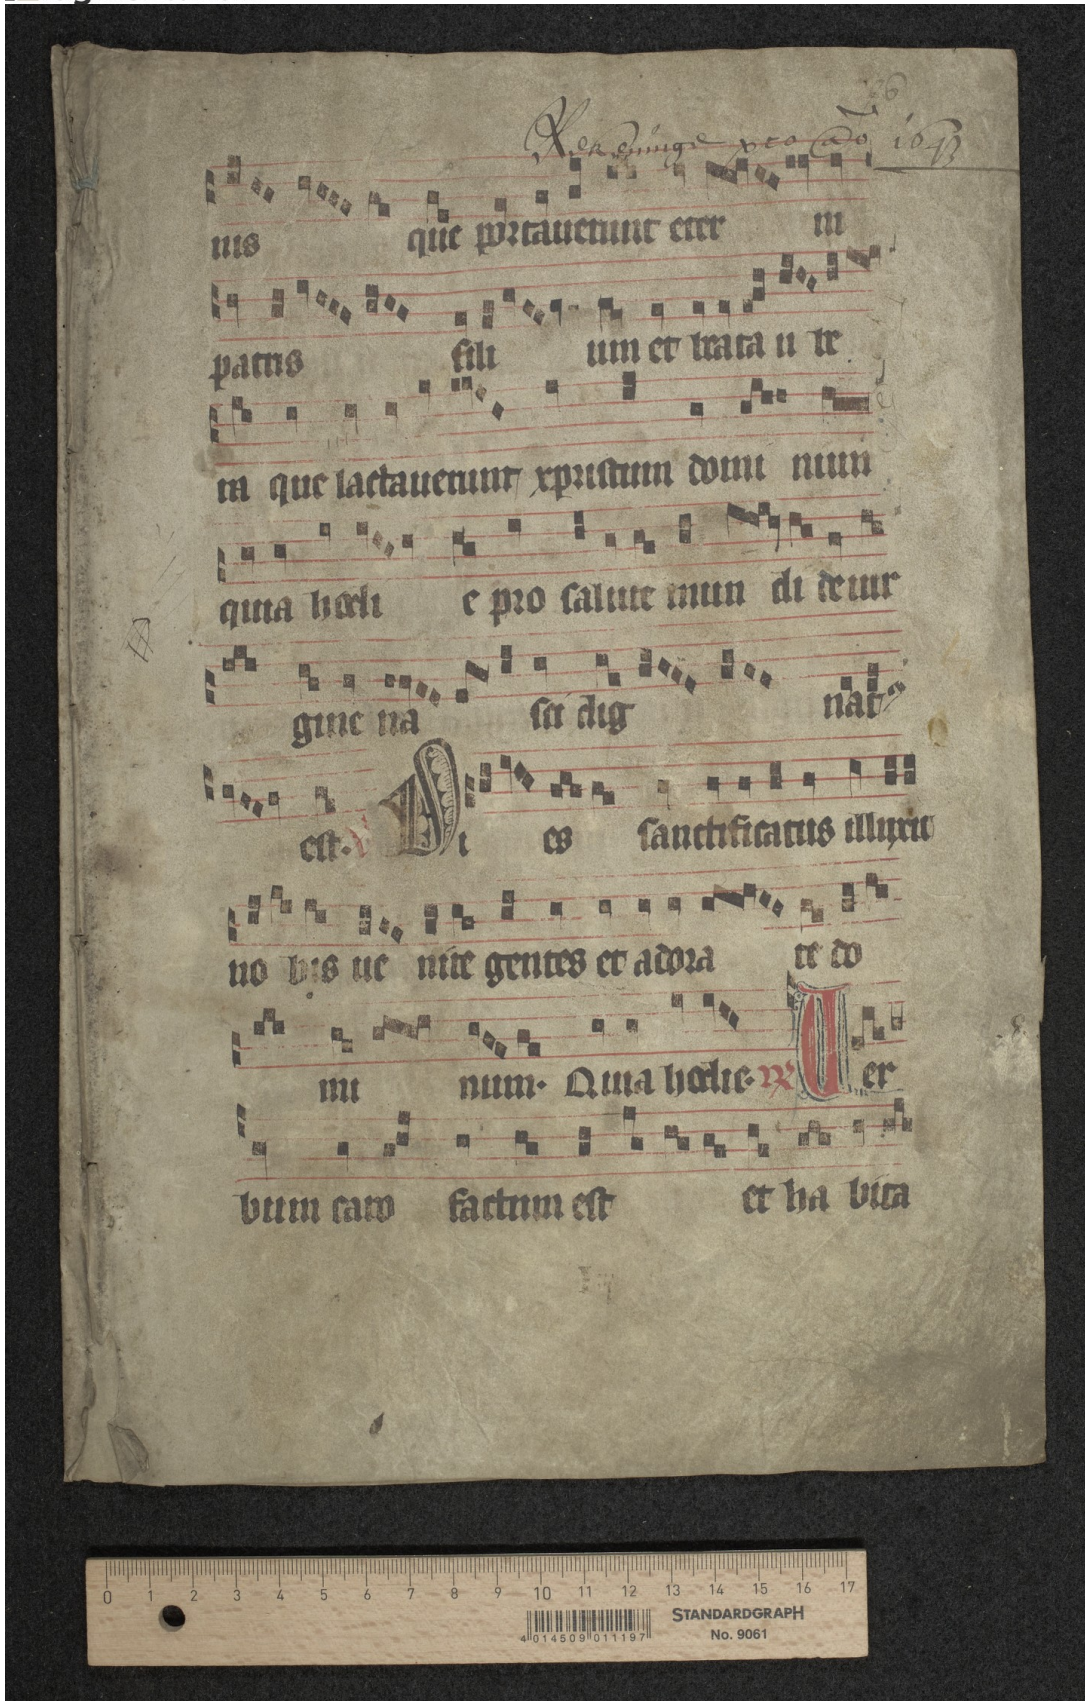 36
Rechnunge pro Ao 1643
nis que portauerunt eter ni
patris fili um et beata u be
ra que lactauerunt xpristum domi num
quia hodi e pro salute mun di de uir
gine na sci dig nat9
est. V Di es sanctificatus illuxit
no bis ue nite gentes et adora te do
mi num. Quia hodie. R Uer
bum caro factum est et ha bita
0 1 2 3 4 5 6 7 8 9 10 11 12 13 14 15 16 17
4 014509 011197
STANDARDGRAPH
No. 9061